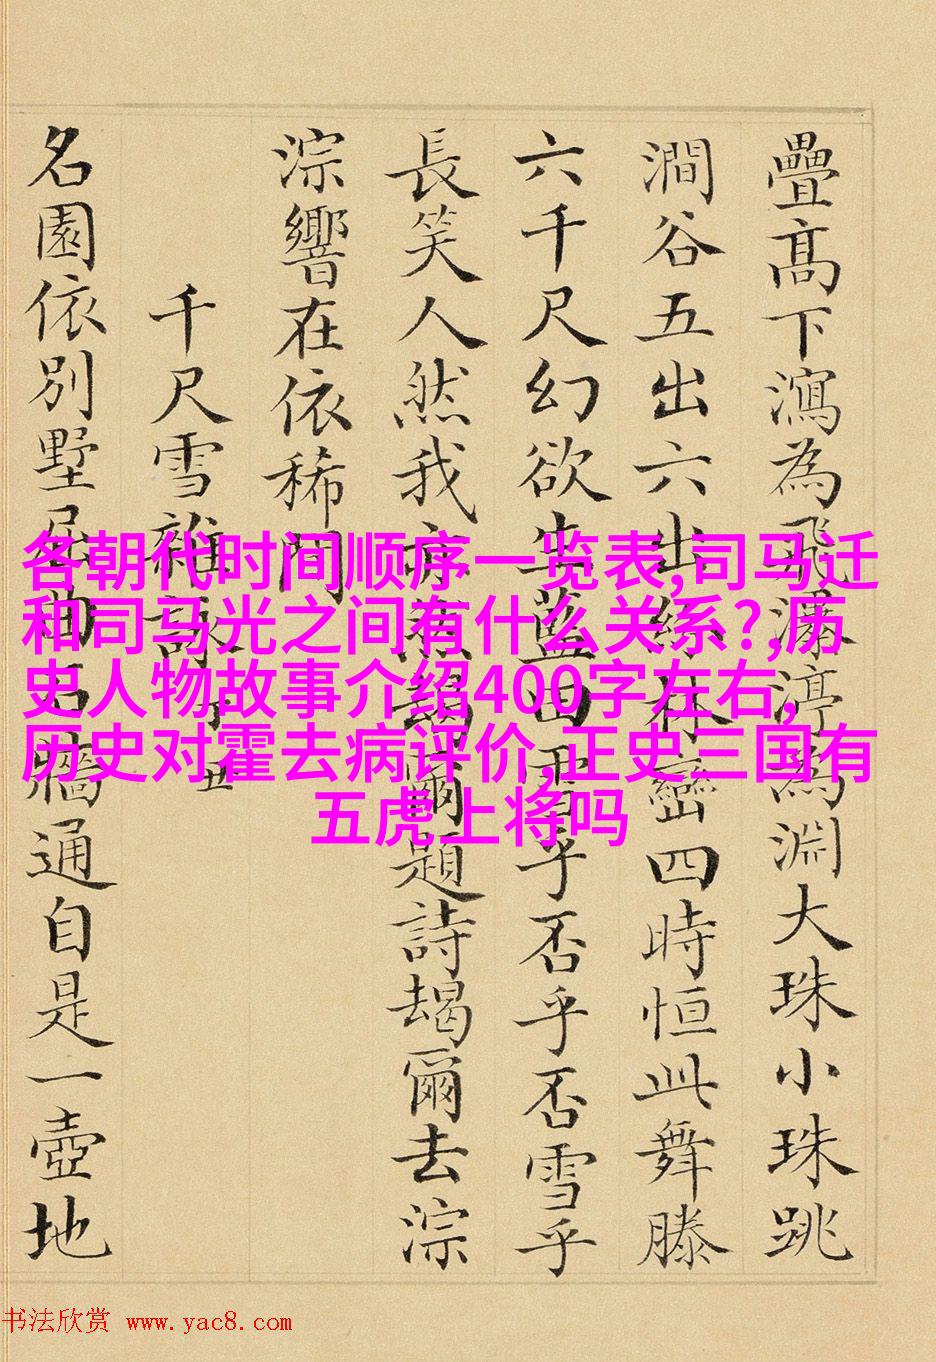 疊髙下瀉為飛瀑渟為淵大珠小珠跳
澗谷五出六出紛林巒四時恒此舞滕
六千尺幻欲生藍田雪乎否乎否雪乎
長笑人然我亦然朅爾題詩朅爾去淙
淙響在依稀間
千尺雪雜詠丁丑
名園依別墅屈曲石牆通自是一壺地
各朝代时间顺序一览表,司马迁
和司马光之间有什么关系?,历
史人物故事介绍400字左右,
历史对霍去病评价,正史三国有
五虎上将吗
书法欣赏 www.yac8.com